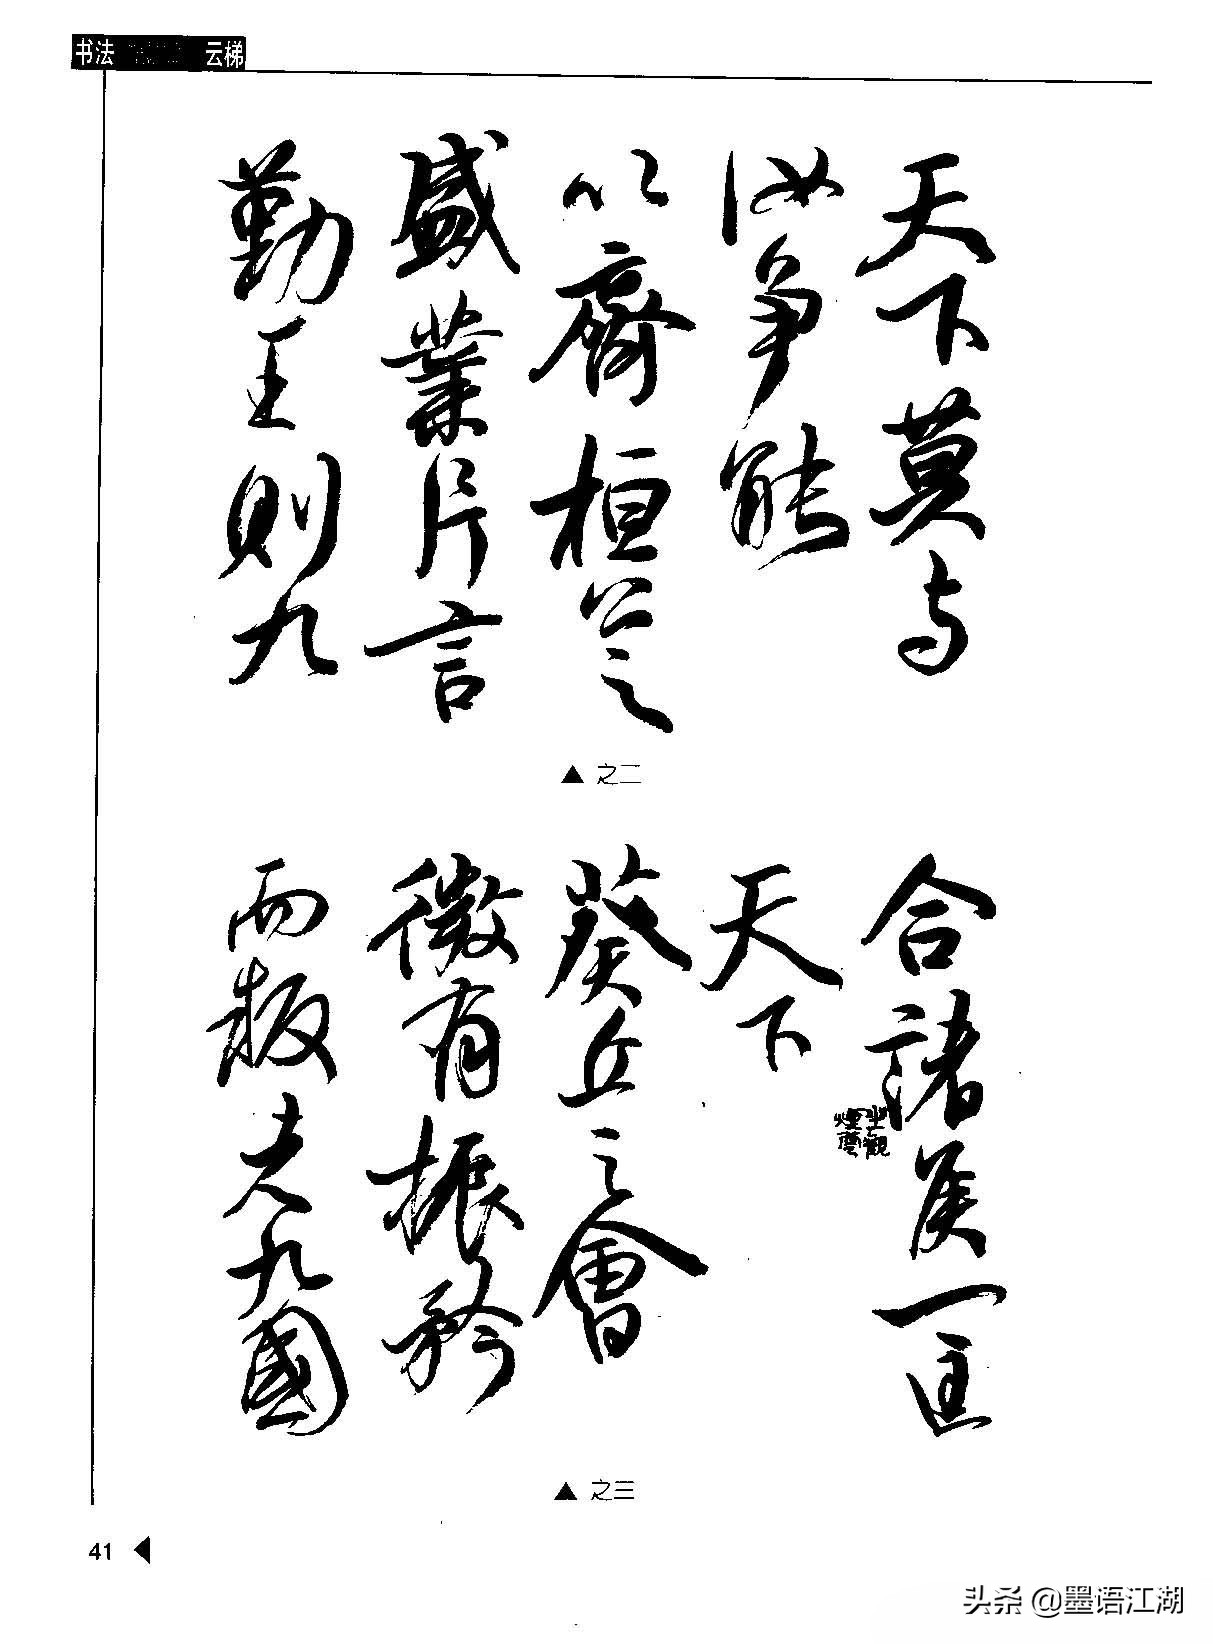 书法 云梯
天下莫与
汝爭能
以齊桓公之
盛業片言
勤王則九
▲ 之二
合諸侯一匡
天下
葵丘之會
微有振矜
而叛者九國
▲ 之三
41
头条 @墨语江湖